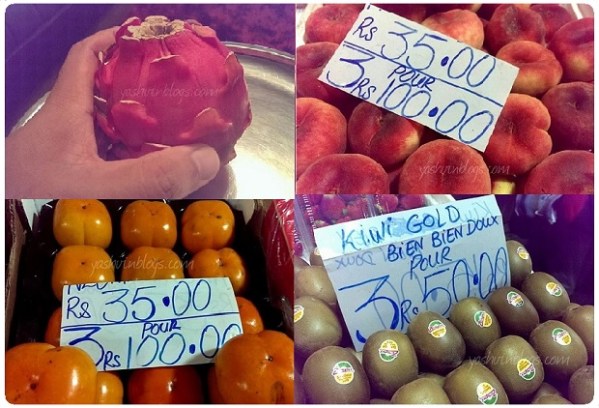 yashvinblogs.com
Rs 35.00
POUR
3 Rs 100.00
yashvinblogs.com
yashvinblogs.com
Rs 35.00
POUR
3 Rs 100.00
KIWI GOLD
BIEN BIEN DOUX
POUR
3 Rs 50.00
yashvinblogs.com